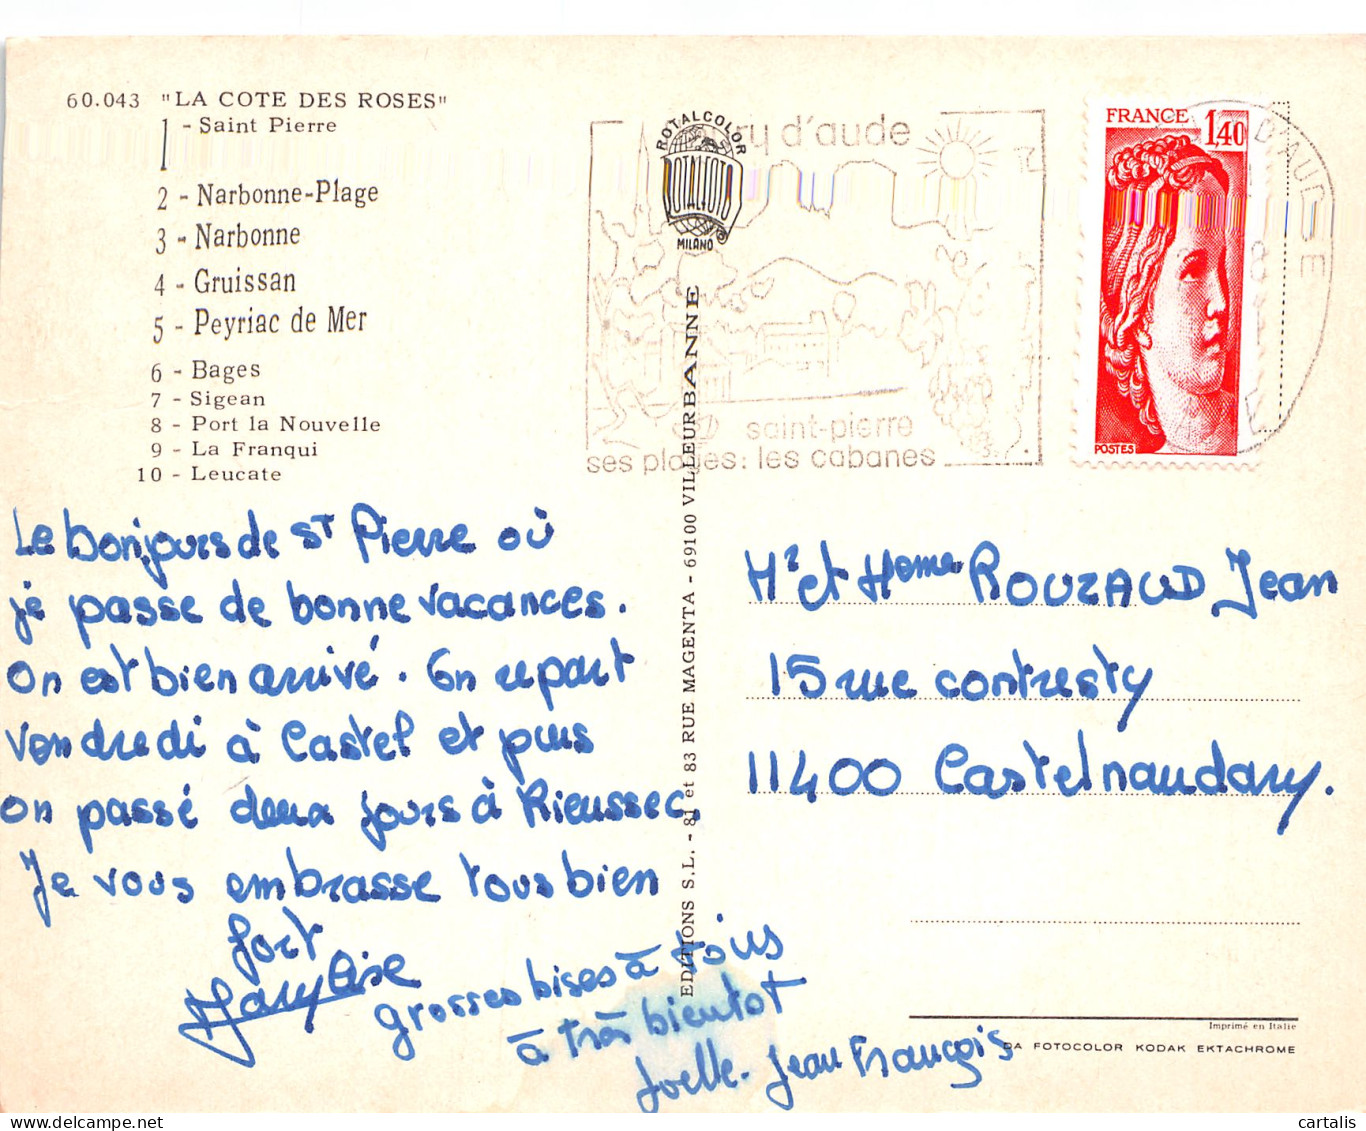 60.043 "LA COTE DES ROSES"
1 - Saint Pierre
2 - Narbonne-Plage
3 - Narbonne
4 - Gruissan
5 - Peyriac de Mer
6 - Bages
7 - Sigean
8 - Port la Nouvelle
9 - La Franqui
10 - Leucate
ROTALCOLOR
ROTALFOTO
MILANO
d'aude
saint-pierre
ses plages: les cabanes
FRANCE 1,40
POSTES
D'AUDE
Le bonjours de St Pierre où
je passe de bonne vacances.
on est bien arrivé. On repart
vendredi à Castel et puis
on passé deux jours à Rieussec.
Je vous embrasse tous bien
fort
Marylise
grosses bises à tous
à très bientot
Joelle. Jean François
EDITIONS S.L. - 81 et 83 RUE MAGENTA - 69100 VILLEURBANNE
Mr et Mme ROUZAUD Jean
15 rue contresty
11400 Castelnaudary.
Imprimé en Italie
DA FOTOCOLOR KODAK EKTACHROME
cartalis